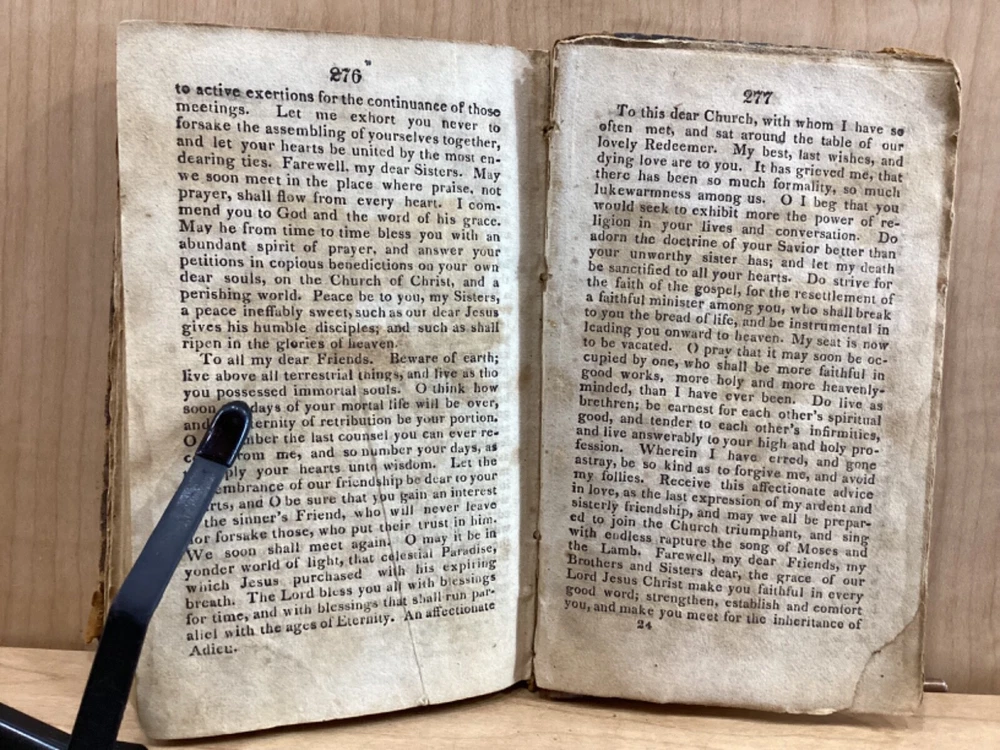 276
to active exertions for the continuance of those
meetings. Let me exhort you never to
forsake the assembling of yourselves together,
and let your hearts be united by the most en-
dearing ties. Farewell, my dear Sisters. May
we soon meet in the place where praise, not
prayer, shall flow from every heart. I com-
mend you to God and the word of his grace.
May he from time to time bless you with an
abundant spirit of prayer, and answer your
petitions in copious benedictions on your own
dear souls, on the Church of Christ, and a
perishing world. Peace be to you, my Sisters,
a peace ineffably sweet, such as our dear Jesus
gives his humble disciples; and such as shall
ripen in the glories of heaven.
To all my dear Friends. Beware of earth;
live above all terrestrial things, and live as tho
you possessed immortal souls. O think how
soon days of your mortal life will be over,
and ernity of retribution be your portion.
O mber the last counsel you can ever re-
c from me, and so number your days, as
ply your hearts unto wisdom. Let the
embrance of our friendship be dear to your
rts, and O be sure that you gain an interest
the sinner's Friend, who will never leave
nor forsake those, who put their trust in him.
We soon shall meet again. O may it be in
yonder world of light, that celestial Paradise,
which Jesus purchased with his expiring
breath. The Lord bless you all with blessings
for time, and with blessings that shall run par-
allel with the ages of Eternity. An affectionate
Adieu.
277
To this dear Church, with whom I have so
often met, and sat around the table of our
lovely Redeemer. My best, last wishes, and
dying love are to you. It has grieved me, that
there has been so much formality, so much
lukewarmness among us. O I beg that you
would seek to exhibit more the power of re-
ligion in your lives and conversation. Do
adorn the doctrine of your Savior better than
your unworthy sister has; and let my death
be sanctified to all your hearts. Do strive for
the faith of the gospel, for the resettlement of
a faithful minister among you, who shall break
to you the bread of life, and be instrumental in
leading you onward to heaven. My seat is now
to be vacated. O pray that it may soon be oc-
cupied by one, who shall be more faithful in
good works, more holy and more heavenly-
minded, than I have ever been. Do live as
brethren; be earnest for each other's spiritual
good, and tender to each other's infirmities,
and live answerably to your high and holy pro-
fession. Wherein I have erred, and gone
astray, be so kind as to forgive me, and avoid
my follies. Receive this affectionate advice
in love, as the last expression of my ardent and
sisterly friendship, and may we all be prepar-
ed to join the Church triumphant, and sing
with endless rapture the song of Moses and
the Lamb. Farewell, my dear Friends, my
Brothers and Sisters dear, the grace of our
Lord Jesus Christ make you faithful in every
good word; strengthen, establish and comfort
you, and make you meet for the inheritance of
24